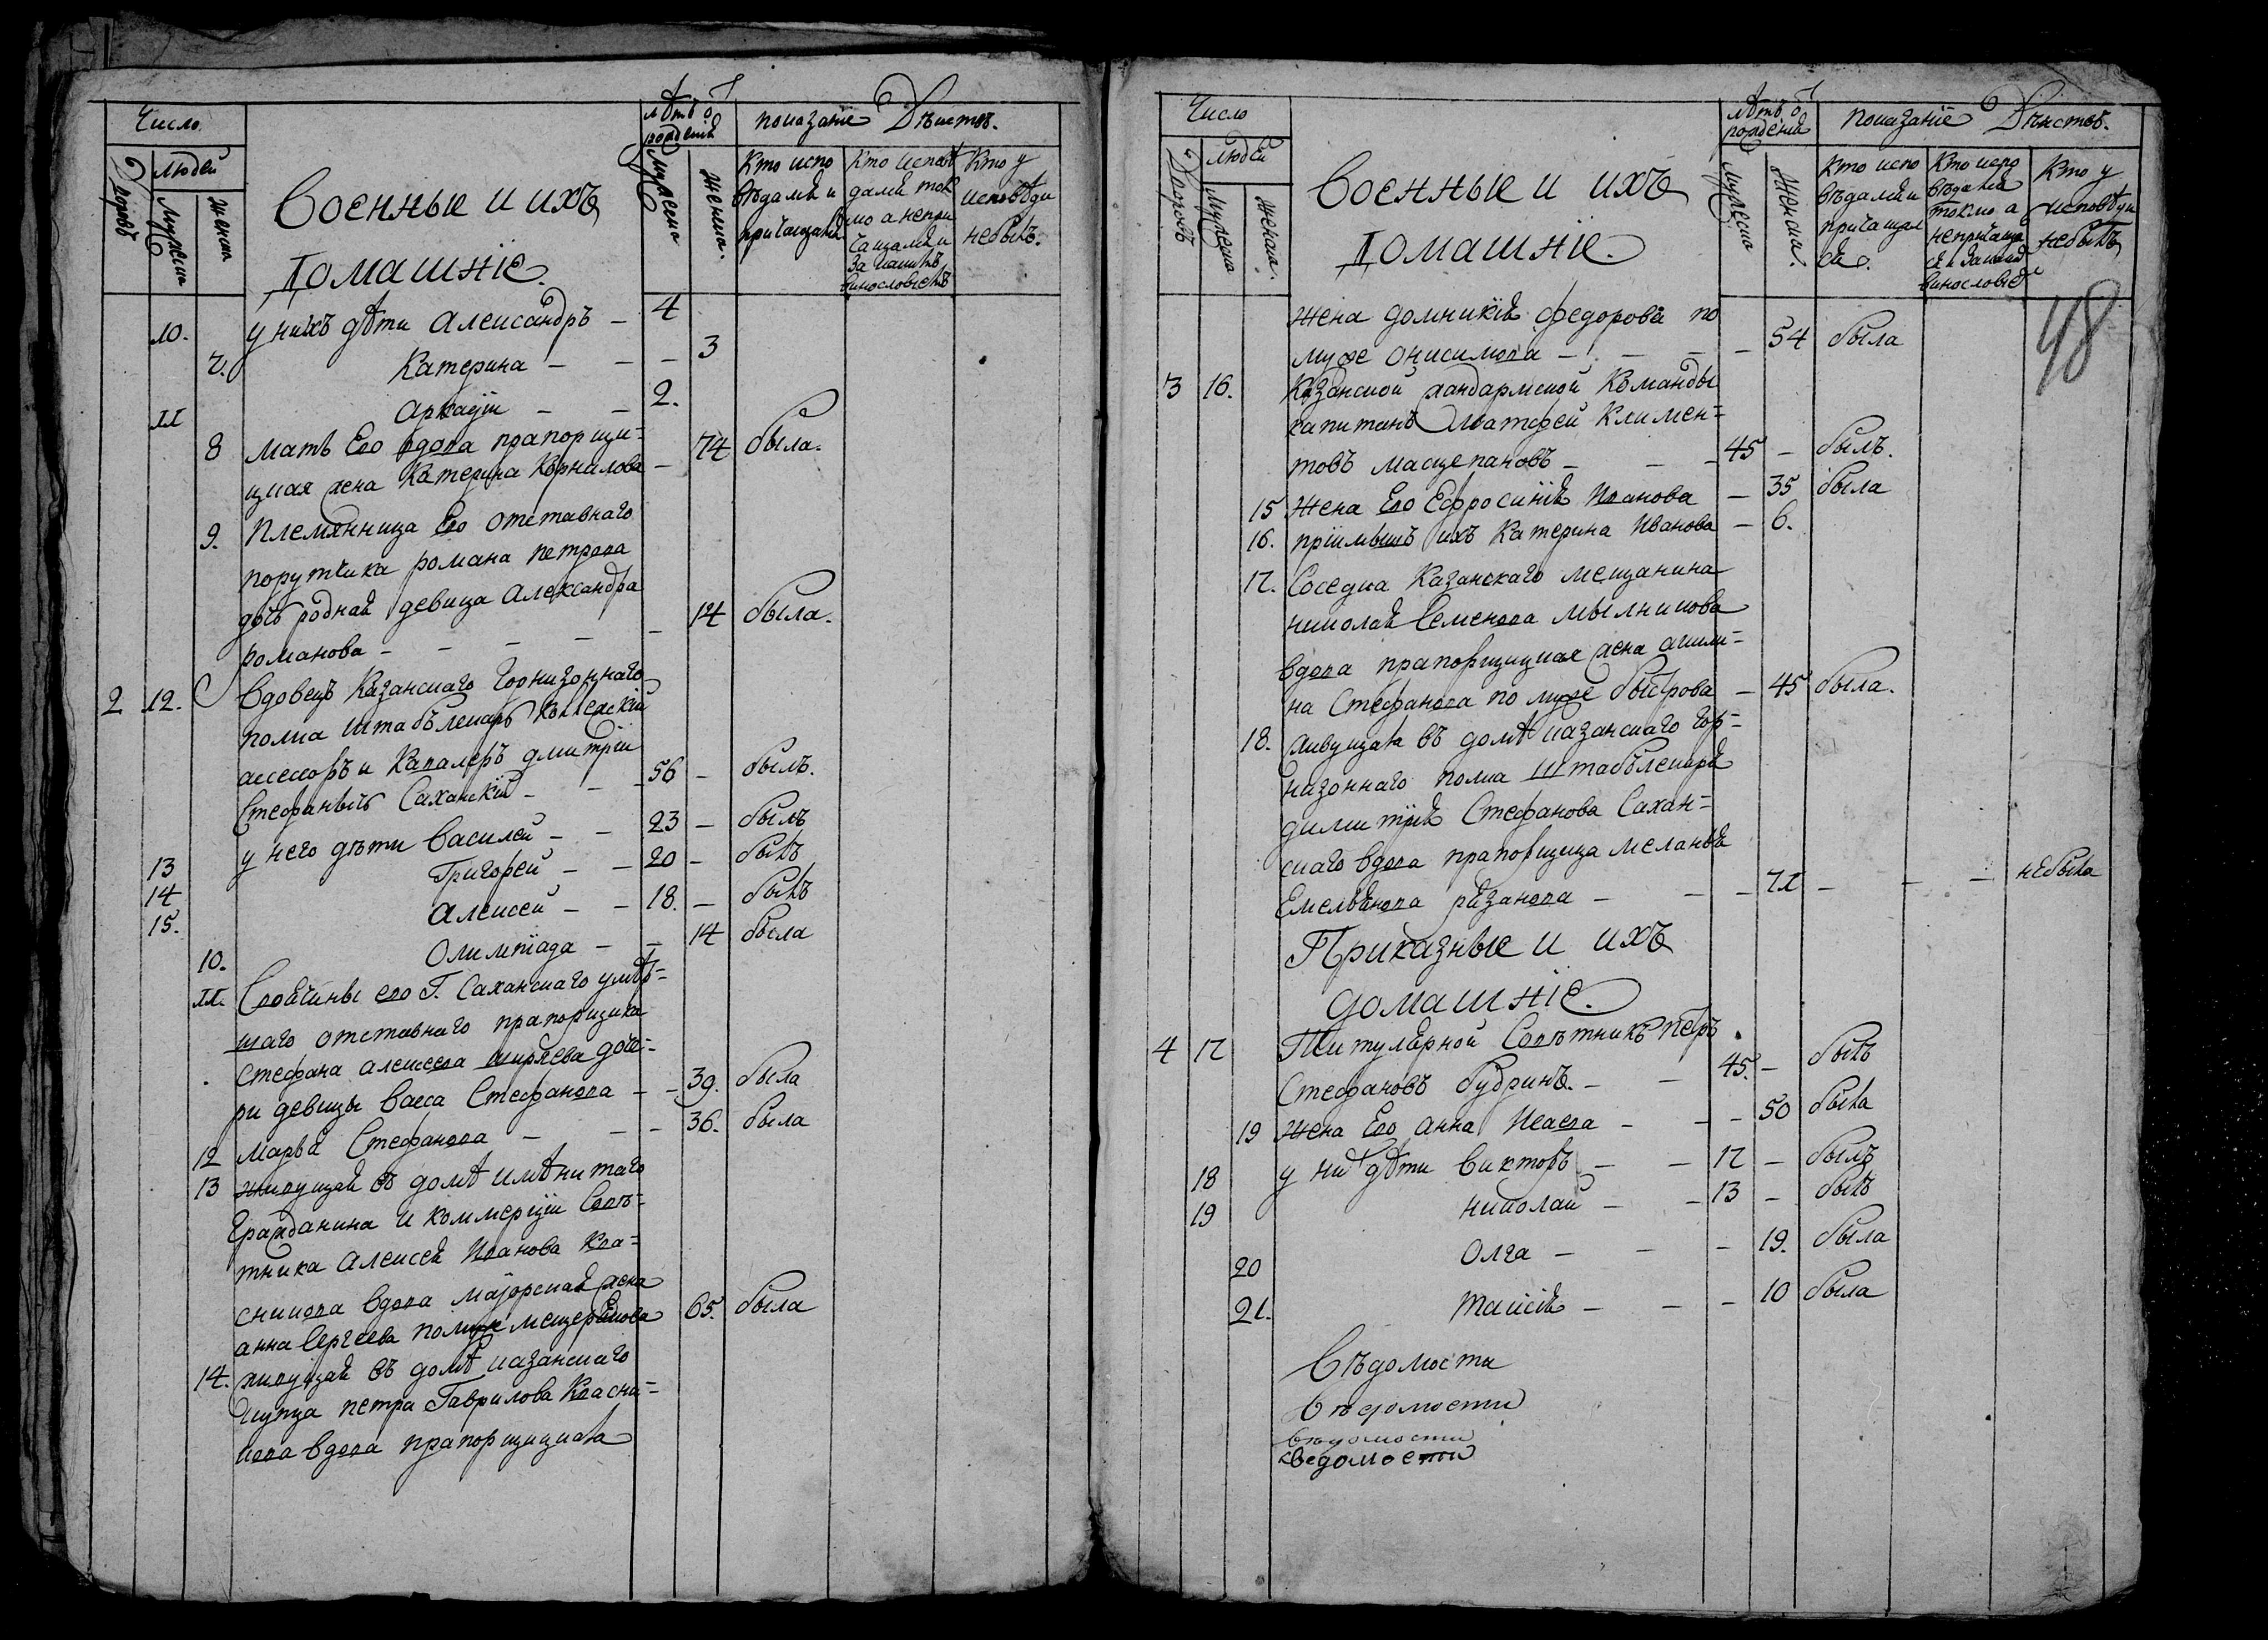 Число
людей
Дворовъ
Мужеска
Женска
Военные и ихъ
Домашніе.
лѣтъ ѿ
рожденія
Мужеска
женска.
показаніе Дѣйствъ.
Кто испо
вѣдался и
причащался
Кто исповѣ
дался ток
мо а непри
чащался и
за какимъ
винословіемъ
Кто у
исповѣди
небылъ.
10. у нихъ дѣти Александръ – 4
7. Катерина – – – 3
11 Аркадіи – – 2.
8 мать Его вдова прапорщи=
цкая жена Катерина Корнилова – 74 была.
9. Племянница Его отставнаго
порутчика романа петрова
дочь родная девица Александра
романова – – – – – 14 была.
2 12. вдовецъ Казанскаго Горнизоннаго
полка штабъ лекарь Коллежскій
ассессоръ и Кавалеръ дмитріи
Стефанычь Саханскій – – – 56 – былъ.
13 у него дѣти Василей – – 23 – былъ
14 Григорей – – 20 – былъ
15. Алексей – – 18. – былъ
10. Олимпіада – – 14 была
11. Свойчины его Г. Саханскаго умер=
шаго отставнаго прапорщика
стефана алексеева ширяева доче=
ри девицы васса Стефанова – – 39. была
12 марья Стефанова – – – 36. была
13 живущая въ домѣ имѣнитаго
Гражданина и коммерціи Совѣ=
тника Алексея Иванова Кра=
сникова вдова маіорская жена
анна Сергеева по муже мещерякова 65. была
14. живущая въ домѣ казанскаго
купца петра Гаврилова Красни=
кова вдова прапорщицката
Число
людей
Дворовъ
мужеска
женска.
Военные и ихъ
Домашніе.
лѣтъ ѿ
рожденія
мужеска
Женска.
показаніе Дѣйствъ.
Кто испо
вѣдался и
причащал
ся.
Кто испо
ведался
токмо а
непричаща
ся и закаким
винословіе
Кто у
исповѣди
небылъ
48
жена домникія федорова по
муже онисимова – – – – 54 была
3 16. Казанской жандармской Команды
капитанъ Матфей Климен=
товъ масцепановъ – – – 45 – былъ.
15 Жена Его Ефросинія Иванова – 35 была
16. пріимышъ ихъ Катерина Иванова – 6.
17. Соседка Казанскаго мещанина
николая Семенова мылникова
вдова прапорщицкая жена акили=
на Стефанова по муже быстрова – 45 была.
18. живущата въ домѣ казанскаго гор=
низоннаго полка Штабълекаря
димитрія Стефанова Сахан=
скаго вдова прапорщица меланья
Емельянова рязанова – – – 71 – – – небыла
Приказные и ихъ
домашніе.
4 17 Титулярной Советникъ петръ
Стефановъ Будринъ. – – 45. – былъ
19 Жена Его анна Исаева – – – 50 была
18 у них дѣти викторъ – – 17 – былъ
19 николай – – 13 – былъ
20 Олга – – – 19. была
21. Таисія – – – 10 была
Вѣдомости
вѣдомости
вѣдомости
ведомости